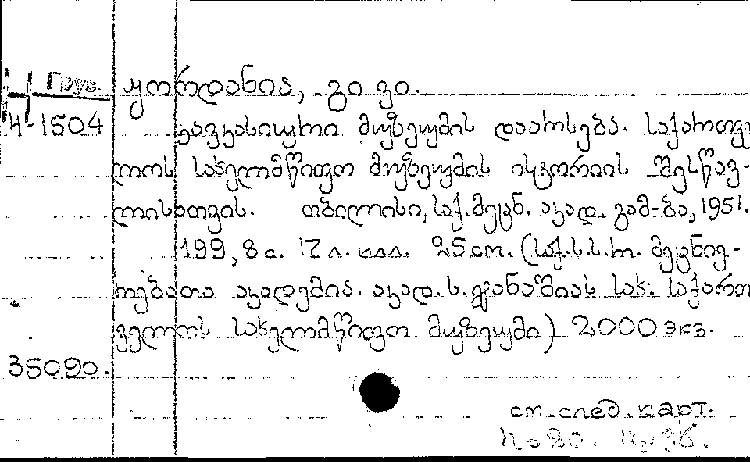 Груз.
ჟორდანია, გი ვი.
Ч-1504
კავკასიური მუზეუმის დაარსება. საქართვე
ლოს სახელმწიფო მუზეუმის ისტორიის შესწავ-
ლისათვის. თბილისი, საქ. მეცნ. აკად. გამ-ბა, 1951.
199, 8 с. 12 л. илл. 25 см. (საქ. ს.ს.რ. მეცნიე-
რებათა აკადემია. აკად. ს. ჯანაშიას სახ. საქართ
ველოს სახელმწიფო მუზეუმი) 2000 экз.
35020.
см. след. карт.